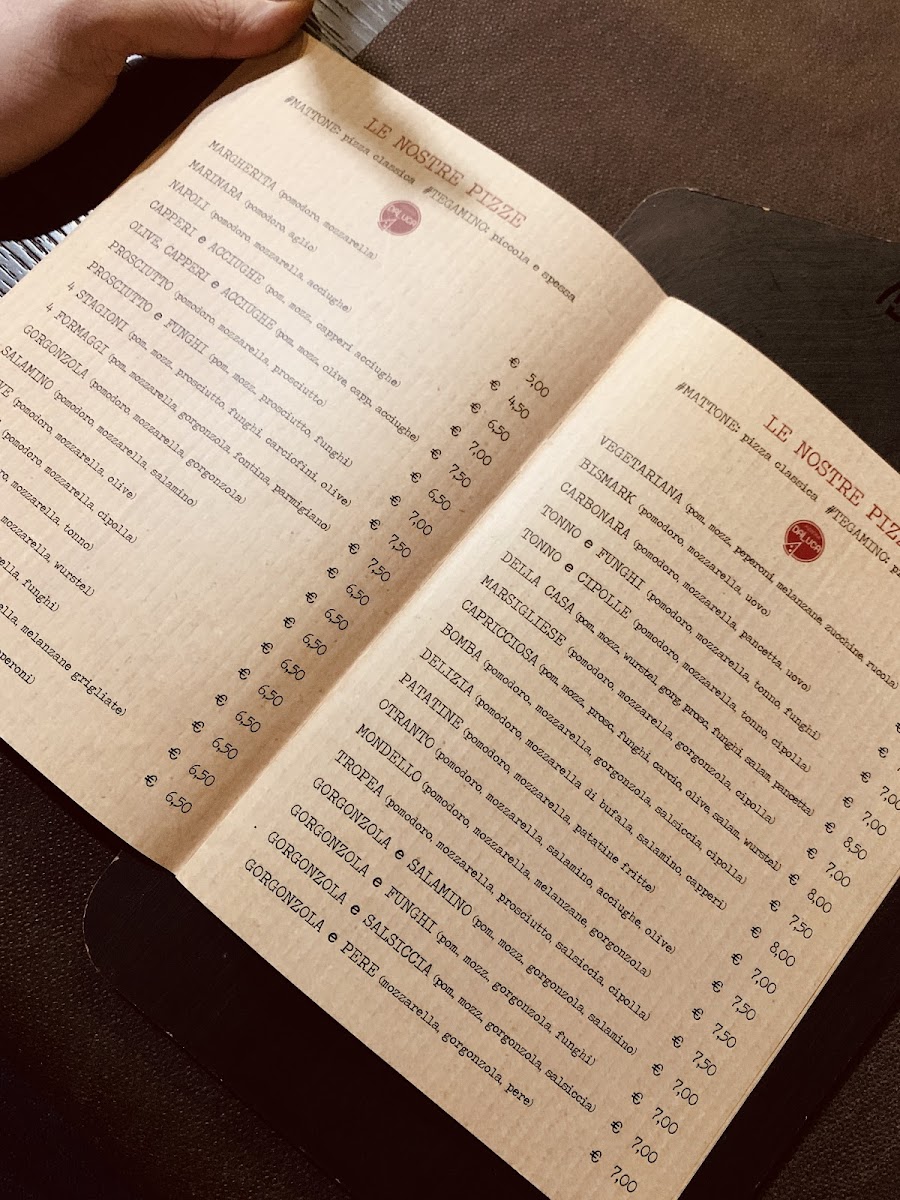 LE NOSTRE PIZZE
#MATTONE: pizza classica #TEGAMINO: piccola e spessa
DALUCA
MARGHERITA (pomodoro, mozzarella) € 5,00
MARINARA (pomodoro, aglio) € 4,50
NAPOLI (pomodoro, mozzarella, acciughe) € 6,50
CAPPERI e ACCIUGHE (pom, mozz, capperi, acciughe) € 7,00
OLIVE, CAPPERI e ACCIUGHE (pom, mozz, olive, capp, acciughe) € 7,50
PROSCIUTTO (pomodoro, mozzarella, prosciutto) € 6,50
PROSCIUTTO e FUNGHI (pom, mozz, prosciutto, funghi) € 7,00
4 STAGIONI (pom, mozz, prosciutto, funghi, carciofini, olive) € 7,50
4 FORMAGGI (pom, mozzarella, gorgonzola, fontina, parmigiano) € 7,50
GORGONZOLA (pomodoro, mozzarella, gorgonzola) € 6,50
SALAMINO (pomodoro, mozzarella, salamino) € 6,50
VE (pomodoro, mozzarella, olive) € 6,50
(pomodoro, mozzarella, cipolla) € 6,50
mozzarella, tonno) € 6,50
mozzarella, wurstel) € 6,50
ella, funghi) € 6,50
ella, melanzane grigliate) € 6,50
eperoni) € 6,50
LE NOSTRE PIZ
#MATTONE: pizza classica #TEGAMINO: pi
DALUCA
VEGETARIANA (pom, mozz, peperoni, melanzane, zucchine, rucola)
BISMARK (pomodoro, mozzarella, uovo) €
CARBONARA (pomodoro, mozzarella, pancetta, uovo) € 7,
TONNO e FUNGHI (pomodoro, mozzarella, tonno, funghi) € 7,00
TONNO e CIPOLLE (pomodoro, mozzarella, tonno, cipolla) € 7,00
DELLA CASA (pom, mozz, wurstel, gorg, prosc, funghi, salam, pancetta) € 8,50
MARSIGLIESE (pomodoro, mozzarella, gorgonzola, cipolla) € 7,00
CAPRICCIOSA (pom, mozz, prosc, funghi, carcio, olive, salam, wurstel) € 8,00
BOMBA (pomodoro, mozzarella, gorgonzola, salsiccia, cipolla) € 7,50
DELIZIA (pomodoro, mozzarella di bufala, salamino, capperi) € 8,00
PATATINE (pomodoro, mozzarella, patatine fritte) € 7,00
OTRANTO (pomodoro, mozzarella, salamino, acciughe, olive) € 7,50
MONDELLO (pomodoro, mozzarella, melanzane, gorgonzola) € 7,50
TROPEA (pomodoro, mozzarella, prosciutto, salsiccia, cipolla) € 7,50
GORGONZOLA e SALAMINO (pom, mozz, gorgonzola, salamino) € 7,00
GORGONZOLA e FUNGHI (pom, mozz, gorgonzola, funghi) € 7,00
GORGONZOLA e SALSICCIA (pom, mozz, gorgonzola, salsiccia) € 7,00
GORGONZOLA e PERE (mozzarella, gorgonzola, pere) € 7,00